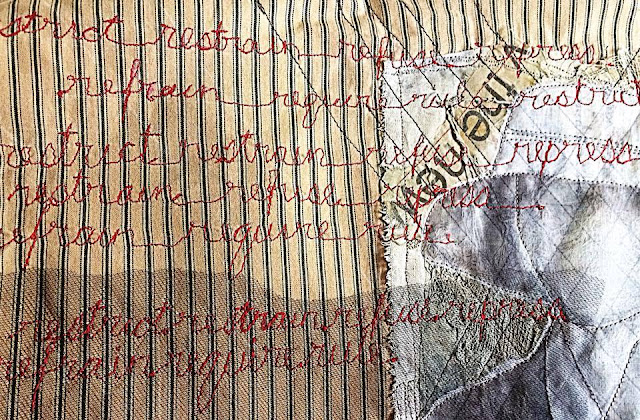 strict restrain refuse repress
refrain require rule restrict
restrict restrain refuse repress
restrain refuse repress
efrain require rule
restrict restrain refuse repress
refrain require rule